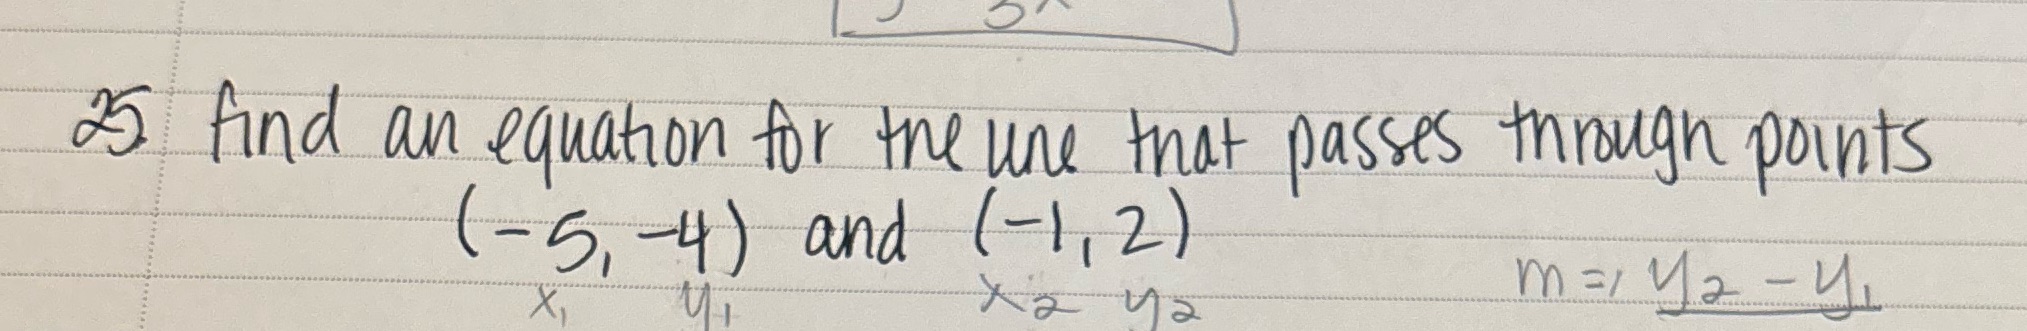 25 find an equation for the line that passes through points
(-5, -4) and (-1, 2)
x₁ y₁ x₂ y₂
m = y₂ - y₁